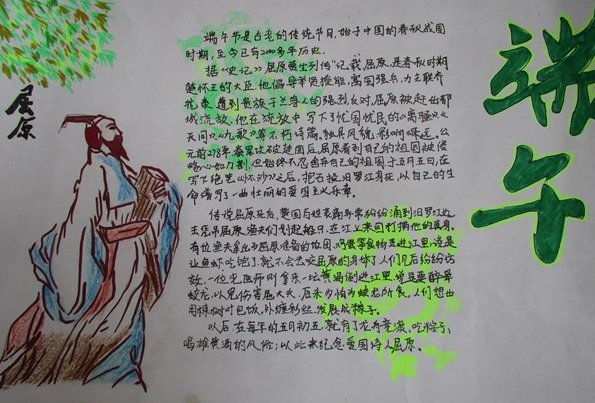 屈原
端午
端午节是古老的传统节日,始于中国的春秋战国
时期,至今已有2000多年历史。
据《史记》屈原贾生列传记载,屈原,是春秋时期
楚怀王的大臣。他倡导举贤授能,富国强兵,力主联齐
抗秦,遭到贵族子兰等人的强烈反对,屈原被赶出都
城,流放,他在流放中,写下了忧国忧民的《离骚》《
天问》《九歌》等不朽诗篇,独具风貌,影响深远,公
元前278年,秦军攻破楚国后,屈原看到自己的祖国被侵
略心如刀割,但始终不忍舍弃自己的祖国,于五月五日,在
写下绝笔《怀沙》之后,抱石投汨罗江身死,以自己的生
命谱写了一曲壮丽的爱国主义乐章。
传说屈原死后,楚国百姓哀痛异常纷纷涌到汨罗江边
去凭吊屈原。渔夫们划起船只,在江上来回打捞他的真身。
有位渔夫拿出为屈原准备的饭团、鸡蛋等食物丢进江里,说是
让鱼虾吃饱了,就不会去咬屈原的身体了。人们见后纷纷仿
效。一位老医师则拿来一坛黄酒倒进江里,说是要醉晕
蛟龙,以免伤害屈大夫,后来为怕为蛟龙所食,人们想出
用楝树叶包饭,外缠彩丝,发展成粽子。
以后,在每年的五月初五,就有了龙舟竞渡、吃粽子、
喝雄黄酒的风俗;以此来纪念爱国诗人屈原。